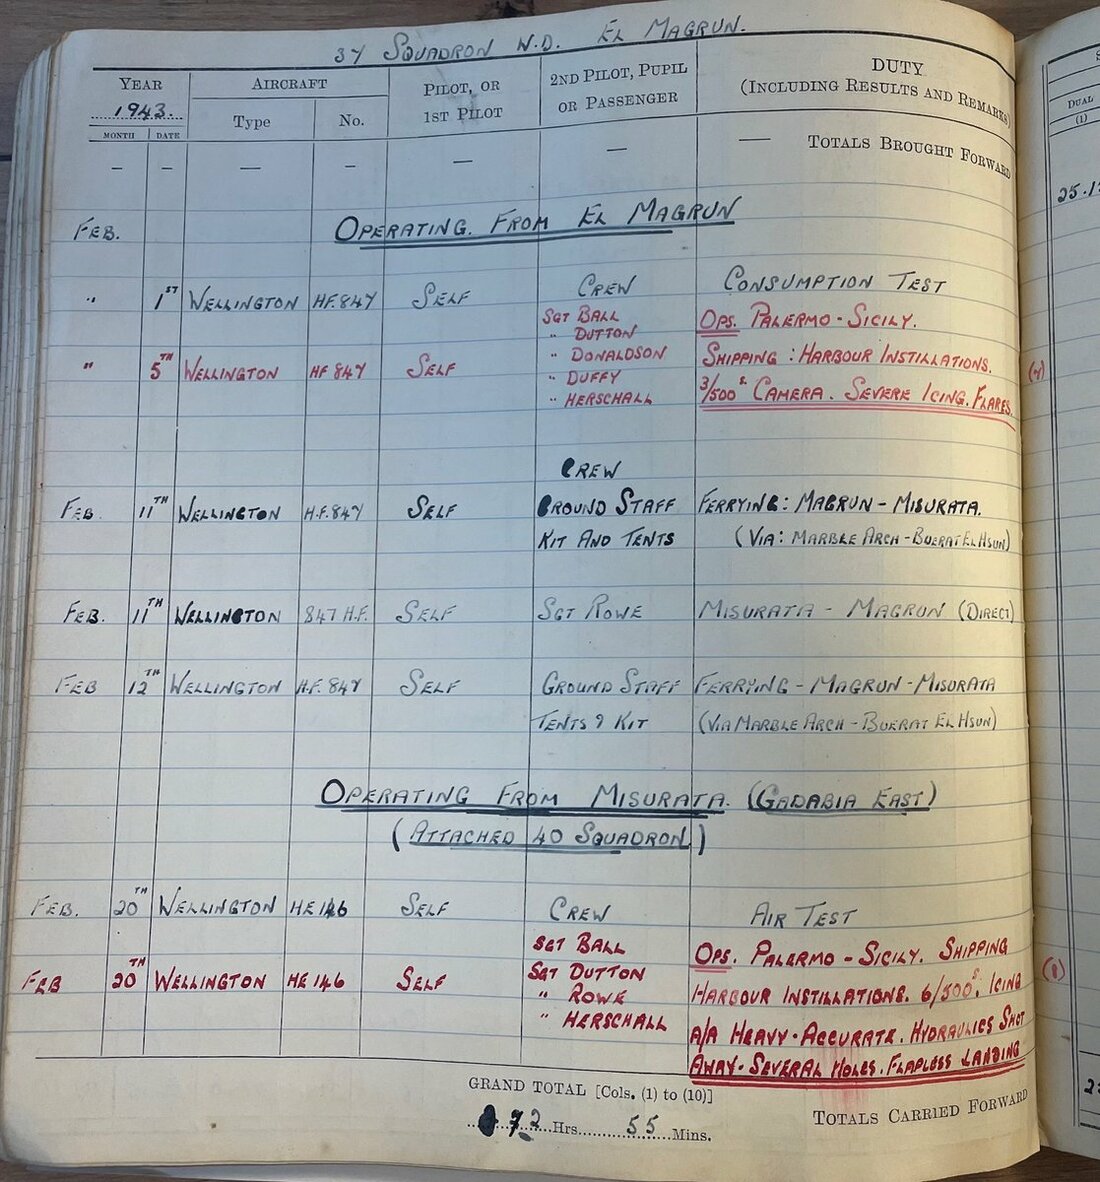 37 SQUADRON W.D. EL MAGRUN.
YEAR AIRCRAFT PILOT, OR 2ND PILOT, PUPIL DUTY
1943. Type No. 1ST PILOT OR PASSENGER (INCLUDING RESULTS AND REMARKS)
MONTH DATE
— — — — — — — TOTALS BROUGHT FORWARD
DUAL
(1)
25.1
FEB. OPERATING. FROM EL MAGRUN
" 1ST WELLINGTON HF.847 SELF CREW CONSUMPTION TEST
SGT BALL OPS. PALERMO - SICILY.
" DUTTON
" 5TH WELLINGTON HF 847 SELF " DONALDSON SHIPPING : HARBOUR INSTILLATIONS.
" DUFFY
" HERSCHALL 3/500s. CAMERA. SEVERE ICING. FLARES.
CREW
FEB. 11TH WELLINGTON H.F.847 SELF GROUND STAFF FERRYING: MAGRUN - MISURATA.
KIT AND TENTS (VIA: MARBLE ARCH - BUERAT EL HSUN)
FEB. 11TH WELLINGTON 847 H.F. SELF SGT ROWE MISURATA - MAGRUN (DIRECT)
FEB 12TH WELLINGTON H.F. 847 SELF GROUND STAFF FERRYING - MAGRUN - MISURATA
TENTS & KIT (VIA MARBLE ARCH - BUERAT EL HSUN)
OPERATING FROM MISURATA. (GADABIA EAST)
(ATTACHED 40 SQUADRON.)
FEB. 20TH WELLINGTON HE 146 SELF CREW AIR TEST
SGT BALL OPS. PALERMO - SICILY. SHIPPING
FEB 20TH WELLINGTON HE 146 SELF SGT DUTTON
" ROWE HARBOUR INSTILLATIONS. 6/500s. ICING
" HERSCHALL A/A HEAVY - ACCURATE. HYDRAULICS SHOT
AWAY - SEVERAL HOLES. FLAPLESS LANDING
GRAND TOTAL [Cols. (1) to (10)] TOTALS CARRIED FORWARD
Hrs. 55 Mins.